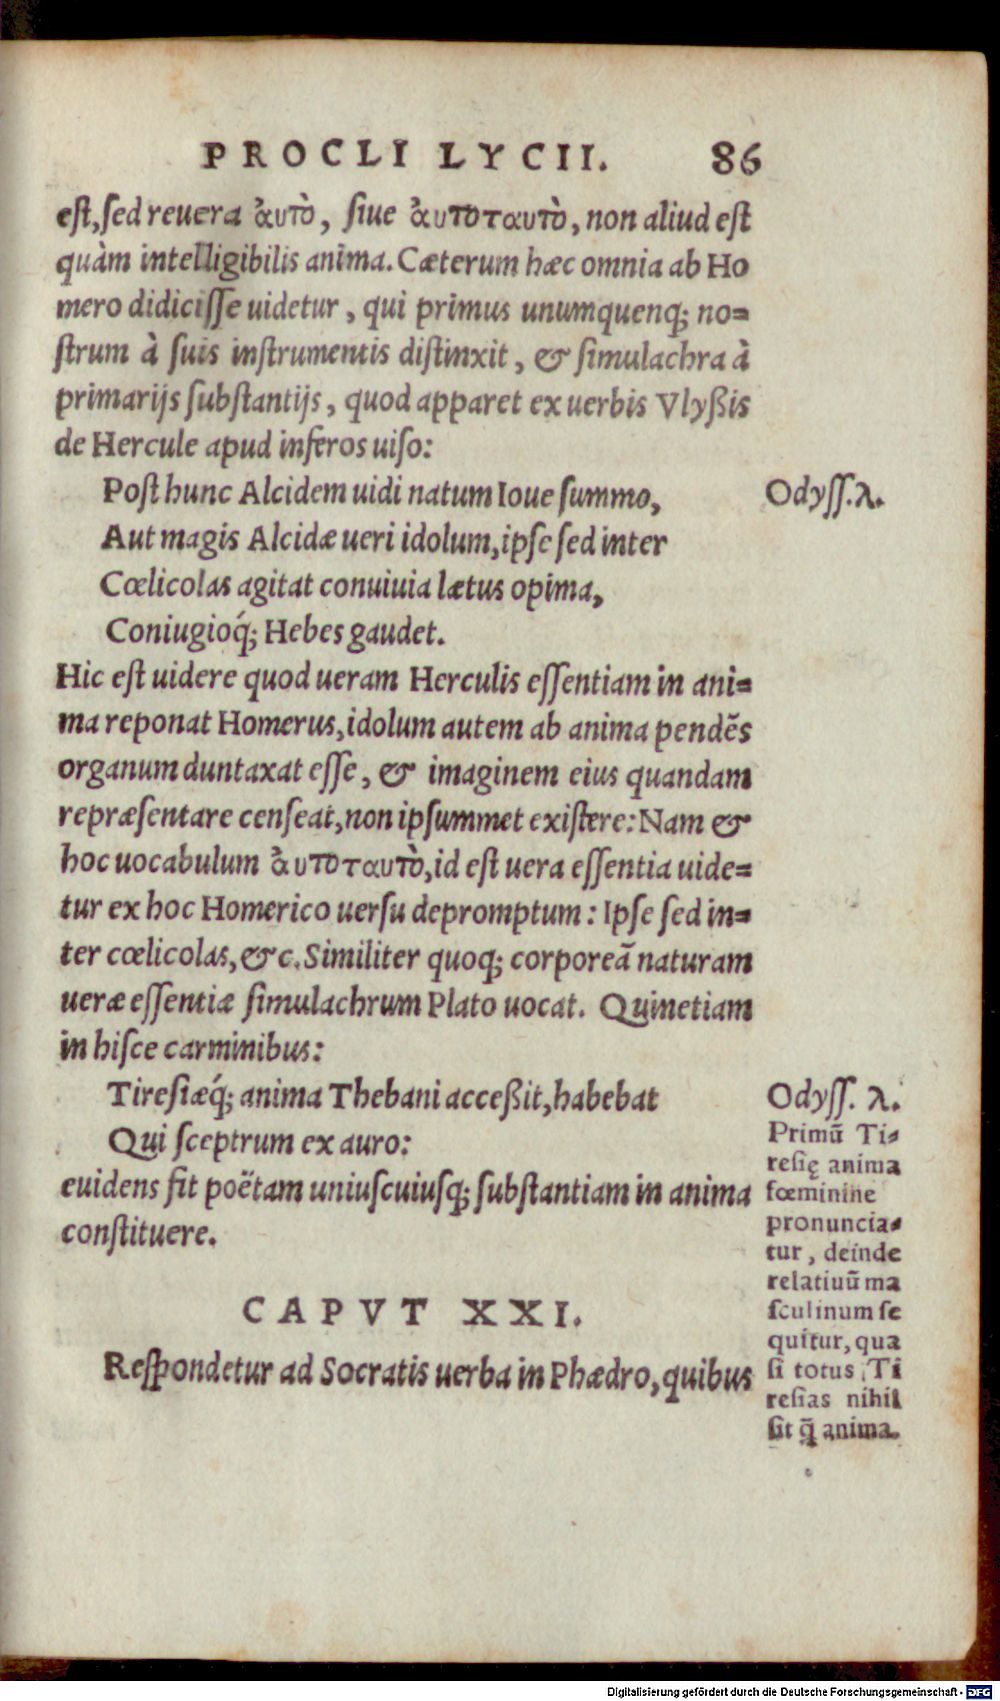 PROCLI LYCII. 86
est, sed reuera ἀυτὸ, siue ἀυτοταυτὸ, non aliud est
quàm intelligibilis anima. Cæterum hæc omnia ab Ho
mero didicisse uidetur, qui primus unumquenq; no=
strum à suis instrumentis distinxit, & simulachra à
primarijs substantijs, quod apparet ex uerbis Vlyßis
de Hercule apud inferos uiso:
Post hunc Alcidem uidi natum Ioue summo,
Odyss. λ.
Aut magis Alcidæ ueri idolum, ipse sed inter
Cœlicolas agitat conuiuia lætus opima,
Coniugioq́; Hebes gaudet.
Hic est uidere quod ueram Herculis essentiam in ani=
ma reponat Homerus, idolum autem ab anima pendẽs
organum duntaxat esse, & imaginem eius quandam
repræsentare censeat, non ipsummet existere: Nam &
hoc uocabulum ἀυτοταυτὸ, id est uera essentia uide=
tur ex hoc Homerico uersu depromptum: Ipse sed in=
ter cœlicolas, &c. Similiter quoq; corporeã naturam
ueræ essentiæ simulachrum Plato uocat. Quinetiam
in hisce carminibus:
Tiresiæq́; anima Thebani acceßit, habebat
Qui sceptrum ex auro:
euidens fit poëtam uniuscuiusq; substantiam in anima
constituere.
Odyss. λ.
Primũ Ti=
resię anima
fœminine
pronuncia=
tur, deinde
relatiuũ ma
sculinum se
quitur, qua
si totus Ti
resias nihil
sit q̃ anima.
CAPVT XXI.
Respondetur ad Socratis uerba in Phædro, quibus
Digitalisierung gefördert durch die Deutsche Forschungsgemeinschaft - DFG